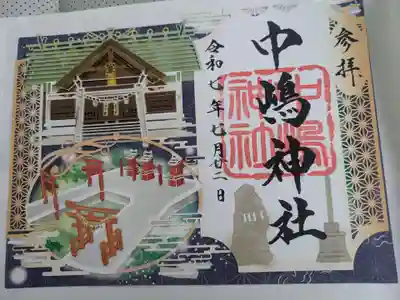 参拝
中嶋神社
中嶋神社
令和七年七月廿二日